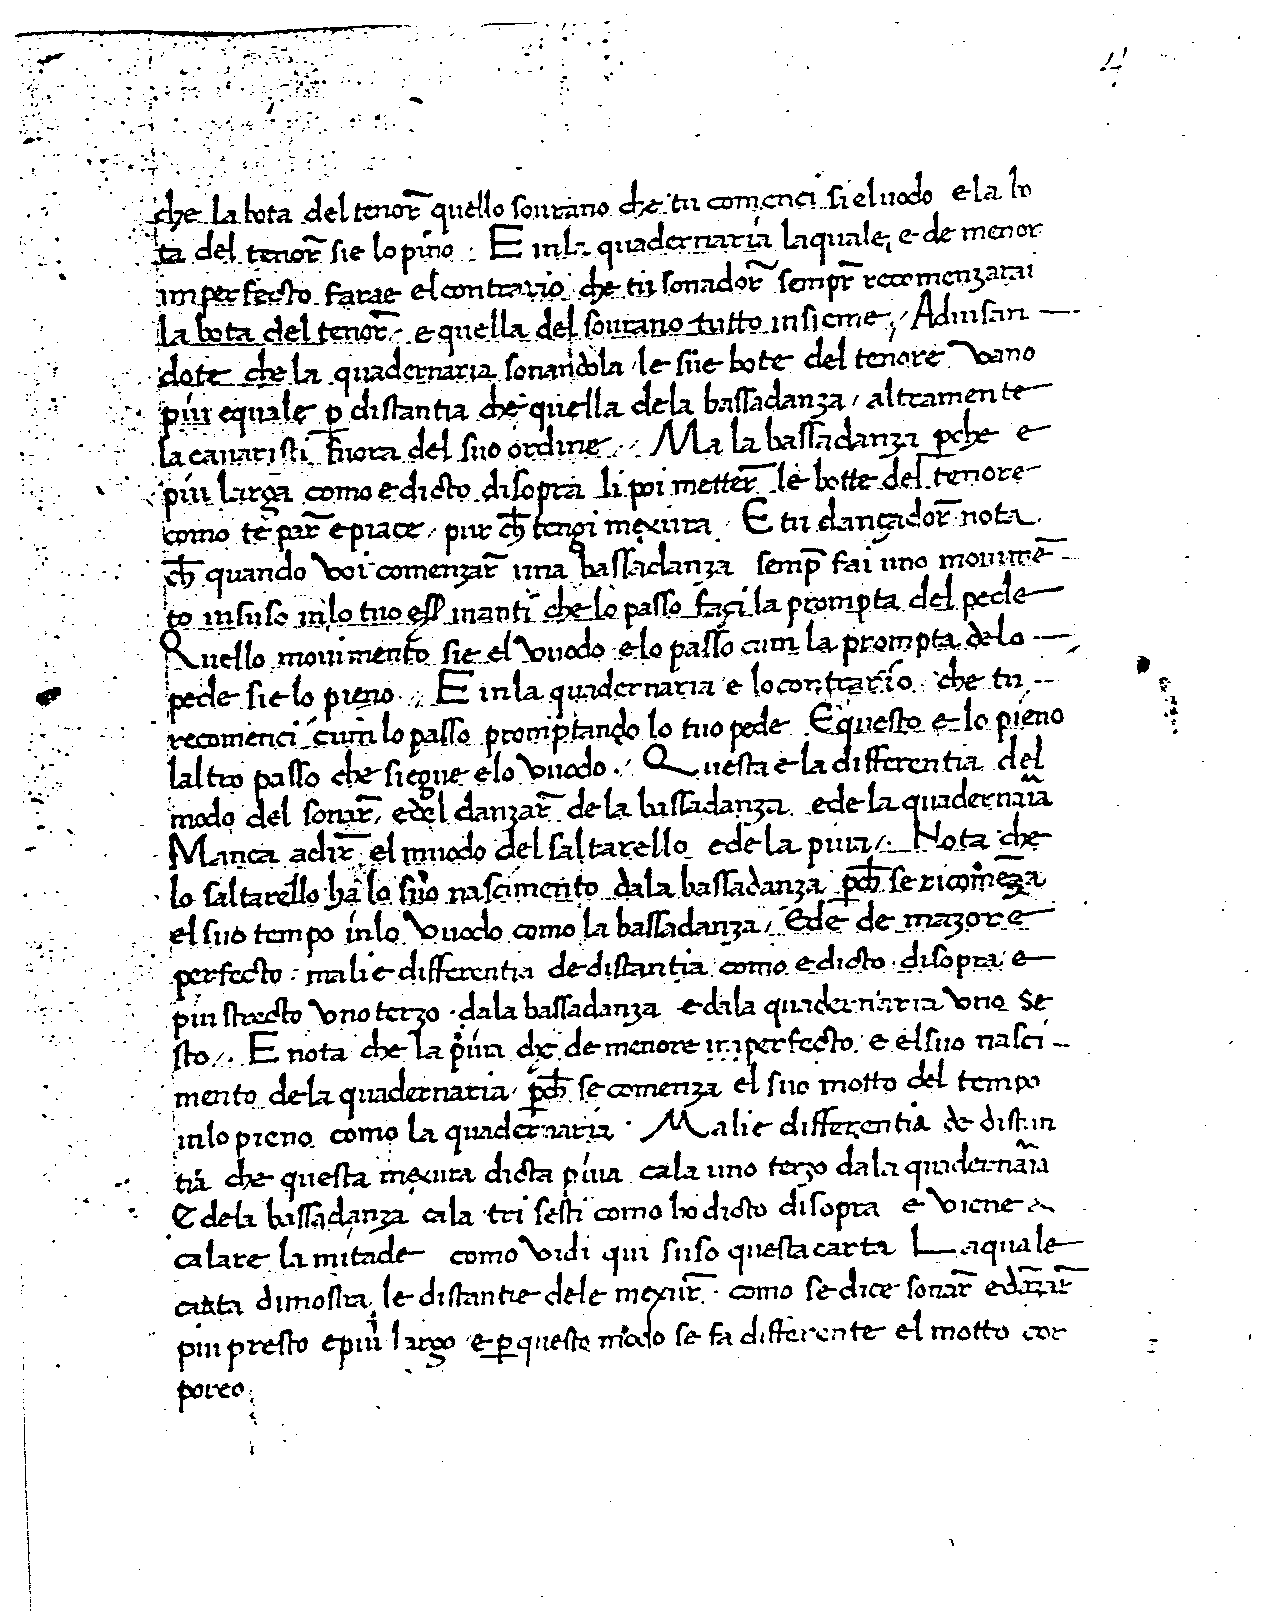 4
che la bota del tenor̃ quello sourano che tu comenci si el uodo e la bo
ta del tenor̃ sie lo pino . E in la quadernaria la quale e de menor
imperfecto farae el contrario che tu sonador̃ sempr̃ recomenzarai
la bota del tenor̃ e quella del sourano tutto insieme / Aduisan
dote che la quadernaria sonandola le sue bote del tenore vano
piu equale ꝑ distantia che quella de la bassadanza / altramente
la cauaristi fuora del suo ordine // Ma la bassadanza ꝑche e
piu larga como e dicto disopra li poi metter̃ le botte del tenore
como te par̃ e piace / pur ch̄ tengi mexura . E tu dançador̃ nota
ch̄ quando voi comenzar̃ una bassadanza semp̃ fai uno mouimē
to in suso in lo tuo ess̃ inanti che lo passo façi la prompta del pede
Quello mouimento sie el vuodo e lo passo cum la prompta de lo
pede sie lo pieno . E in la quadernaria e lo contrario che tu
recomenci cum lo passo promptando lo tuo pede E questo e lo pieno
laltro passo che siegue e lo vuodo . Questa e la differentia del
modo del sonar̃ e del danzar̃ de la bassadanza e de la quadernaīa
Manca a dir̃ el muodo del saltarello e de la piua . Nota che
lo saltarello ha lo suo nascimento dala bassadanza ꝑch̄ se ricomēza
el suo tempo in lo vuodo como la bassadanza / Ede de mazore
perfecto . ma lie differentia de distantia como e dicto disopra e
piu strecto vno terzo . dala bassadanza e dala quadernaria vno se
sto // E nota che la piua de de menore imperfecto e el suo nasci
mento de la quadernaria / ꝑch̄ se comenza el suo motto del tempo
in lo pieno como la quadernaria . Ma lie differentia de distan
tia che questa mexura dicta piua cala uno terzo dala quadernaīa
E dela bassadanza cala tri sesti como ho dicto disopra e viene a
calare la mitade como vidi qui suso questa carta La quale
carta dimostra le distantie dele mexur̃ . como se dice sonar̃ e dāzar̃
piu presto e piu largo e ꝑ questo modo se fa differente el motto cor
poreo